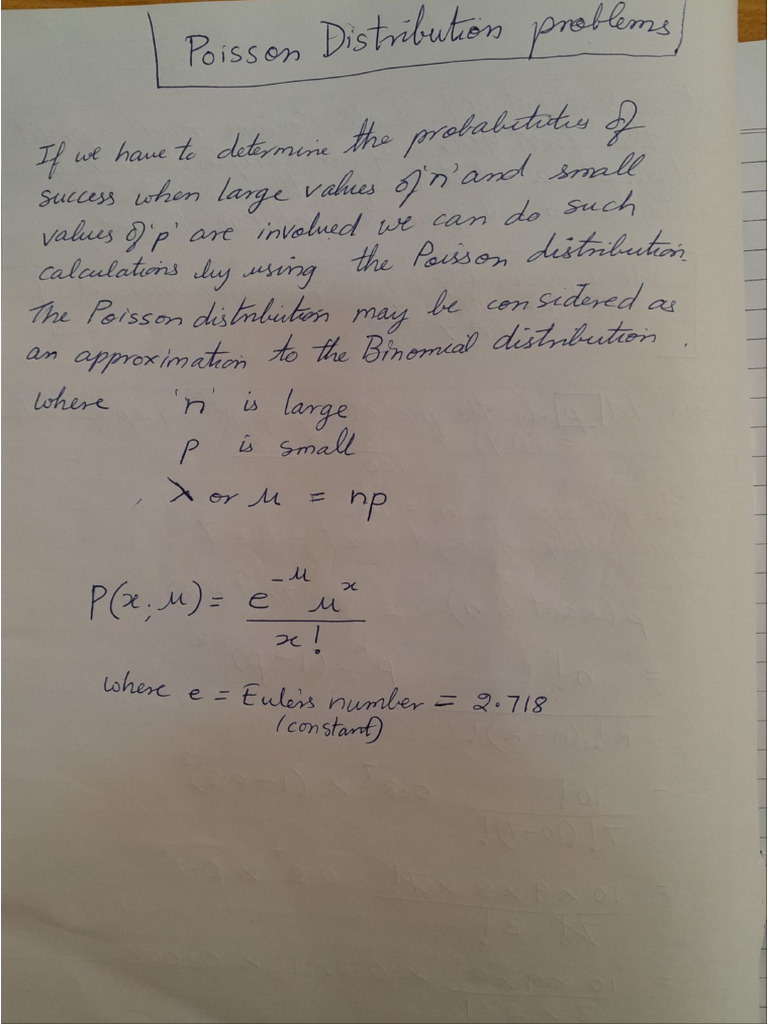 Poisson Distribution problems
If we have to determine the probabilities of
success when large values of 'n' and small
values of 'p' are involved we can do such
calculations by using the Poisson distribution.
The Poisson distribution may be considered as
an approximation to the Binomial distribution.
where 'n' is large
p is small
λ or μ = np
P(x; μ) = e^-μ μ^x
x!
where e = Euler's number = 2.718
(constant)